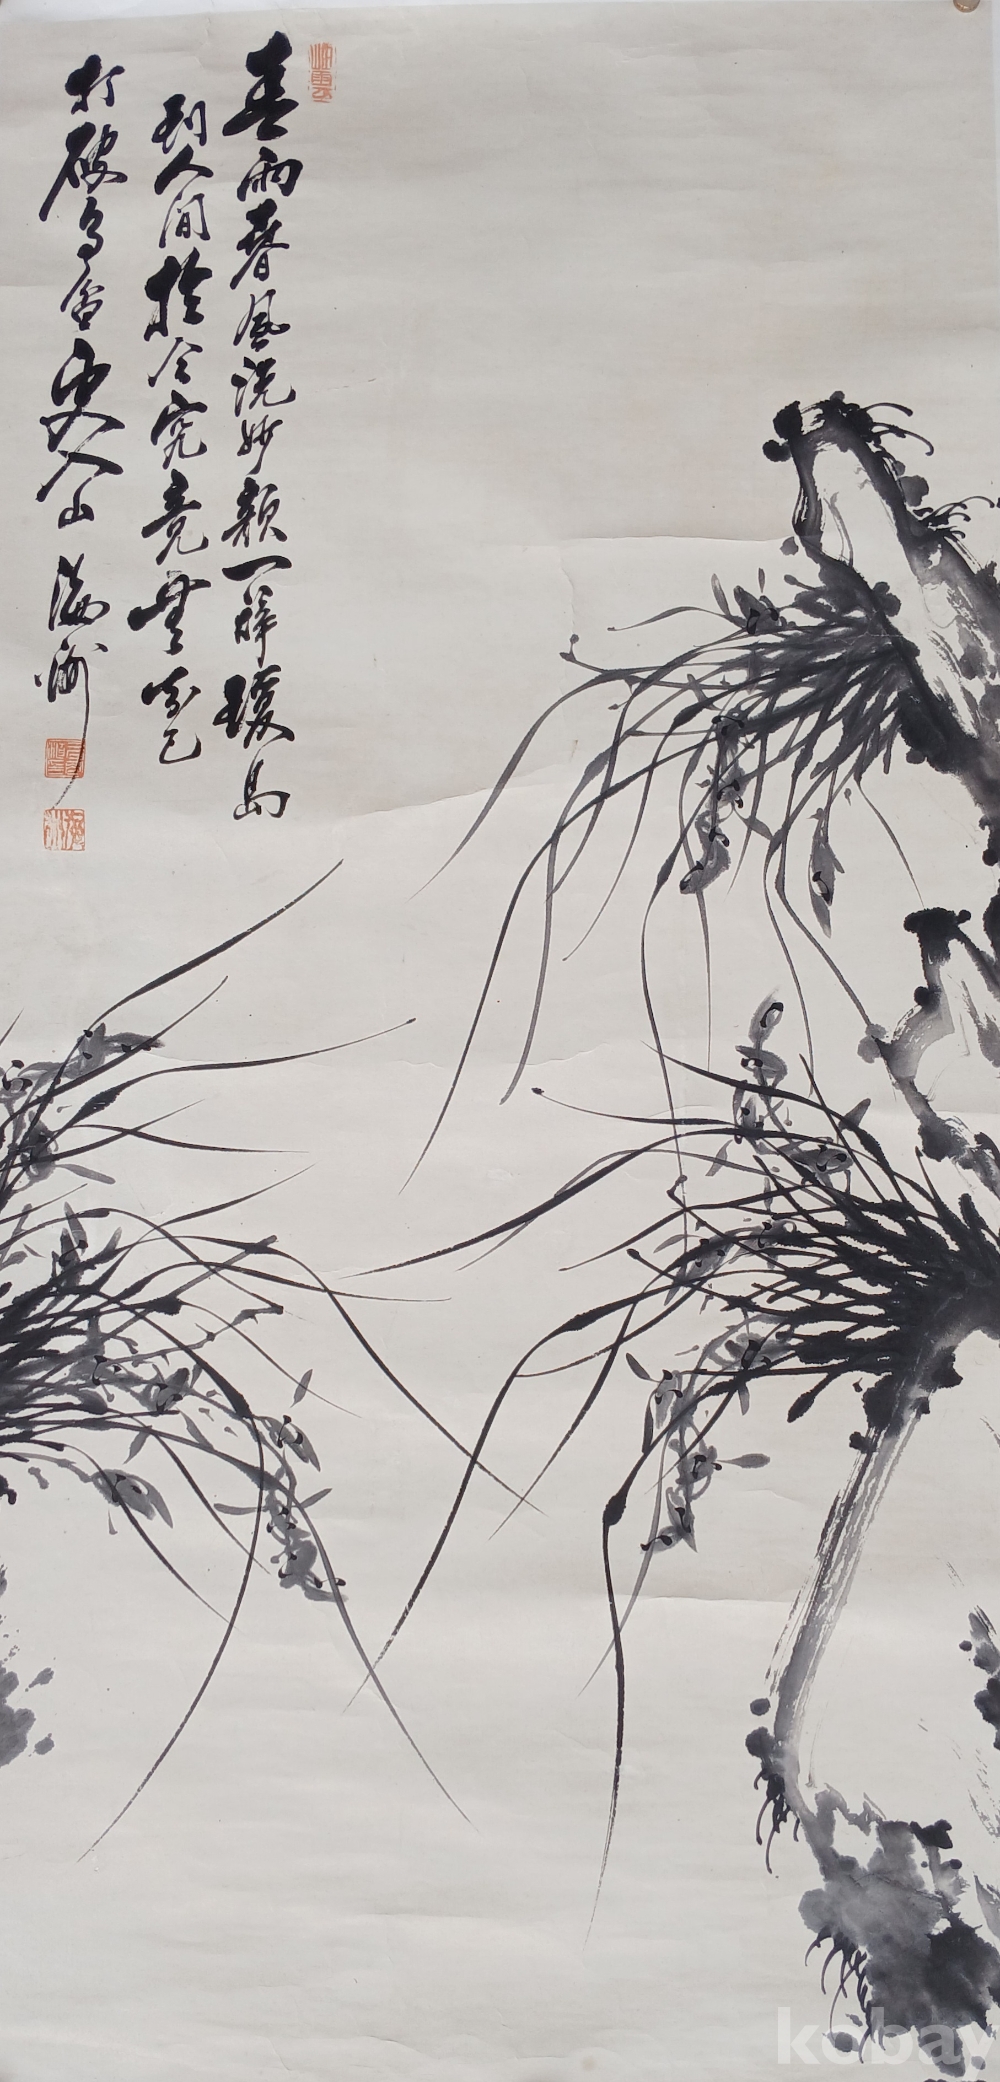 春雨春風洗妙顔一辭瓊島
到人間扵今究竟無知己
打破烏盆更入山
kobay